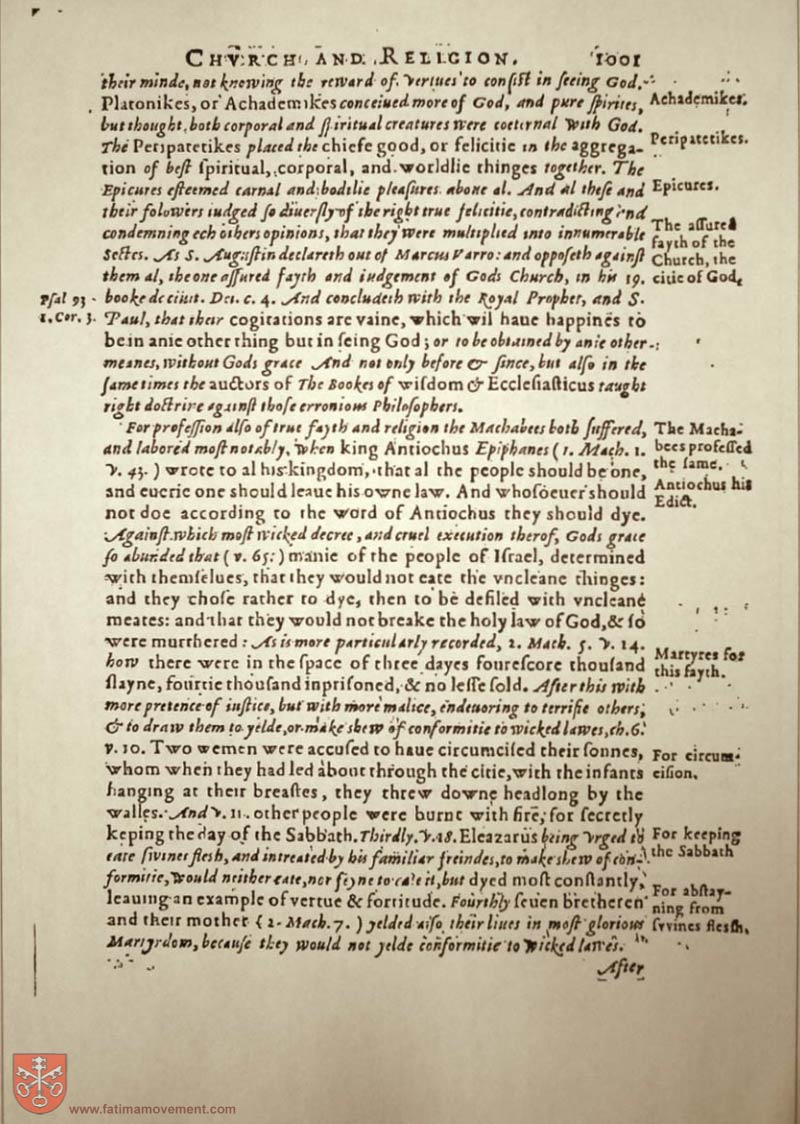 CHVRCH AND RELIGION. 1001
their minde, not knowing the reward of vertues to consist in seeing God.
Platonikes, or Achademikes conceiued more of God, and pure spirites,
but thought both corporal and spiritual creatures were coeternal with God.
The Peripatetikes placed the chiefe good, or felicitie in the aggrega-
tion of best spiritual, corporal, and worldlie thinges together. The
Epicures esteemed carnal and bodilie pleasures aboue al. And al these and
their folowers iudged so diuersly of the right true felicitie, contradicting and
condemning ech others opinions, that they were multiplied into innumerable
Sectes. As S. Augustin declareth out of Marcus Varro: and opposeth against
them al, the one assured fayth and iudgement of Gods Church, in his 19.
booke de ciuit. Dei. c. 4. And concludeth with the Royal Prophet, and S.
Paul, that their cogitations are vaine, which wil haue happines to
be in anie other thing but in seing God; or to be obtained by anie other
meanes, without Gods grace And not only before & since, but also in the
same times the auctors of The Bookes of wisdom & Ecclesiasticus taught
right doctrine against those erronious Philosophers.
For profession also of true fayth and religion the Machabees both suffered,
and labored most notably, when king Antiochus Epiphanes (1. Mach. 1.
v. 43.) wrote to al his kingdom, that al the people should be one,
and euerie one should leaue his owne law. And whosoeuer should
not doe according to the word of Antiochus they should dye.
Against which most wicked decree, and cruel execution therof, Gods grace
so abunded that (v. 65:) manie of the people of Israel, determined
with themselues, that they would not eate the vncleane thinges:
and they chose rather to dye, then to be defiled with vncleane
meates: and that they would not breake the holy law of God, & so
were murthered: As is more particularly recorded, 2. Mach. 5. v. 14.
how there were in the space of three dayes fourescore thousand
slayne, fourtie thousand inprisoned, & no lesse sold. After this with
more pretence of iustice, but with more malice, endeuoring to terrifie others,
& to draw them to yelde, or make shew of conformitie to wicked lawes, ch. 6.
v. 10. Two wemen were accused to haue circumcised their sonnes,
whom when they had led about through the citie, with the infants
hanging at their breastes, they threw downe headlong by the
walles. And v. 11. other people were burnt with fire, for secretly
keping the day of the Sabbath. Thirdly. v. 18. Eleazarus being vrged to
eate swines flesh, and intreated by his familiar freindes, to make shew of con-
formitie, would neither eate, nor feyne to eate it, but dyed most constantly,
leauing an example of vertue & fortitude. Fourthly seuen bretheren
and their mother (2. Mach. 7.) yelded also their liues in most glorious
Martyrdom, because they would not yelde conformitie to wicked lawes.
After
Achademikes.
Peripatetikes.
Epicures.
The assured
fayth of the
Church, the
citie of God,
Psal 93
1. Cor. 3.
The Macha-
bees professed
the same.
Antiochus his
Edict.
Martyres for
this fayth.
For circum-
cision.
For keeping
the Sabbath
For abstay-
ning from
swines flesh.
www.fatimamovement.com